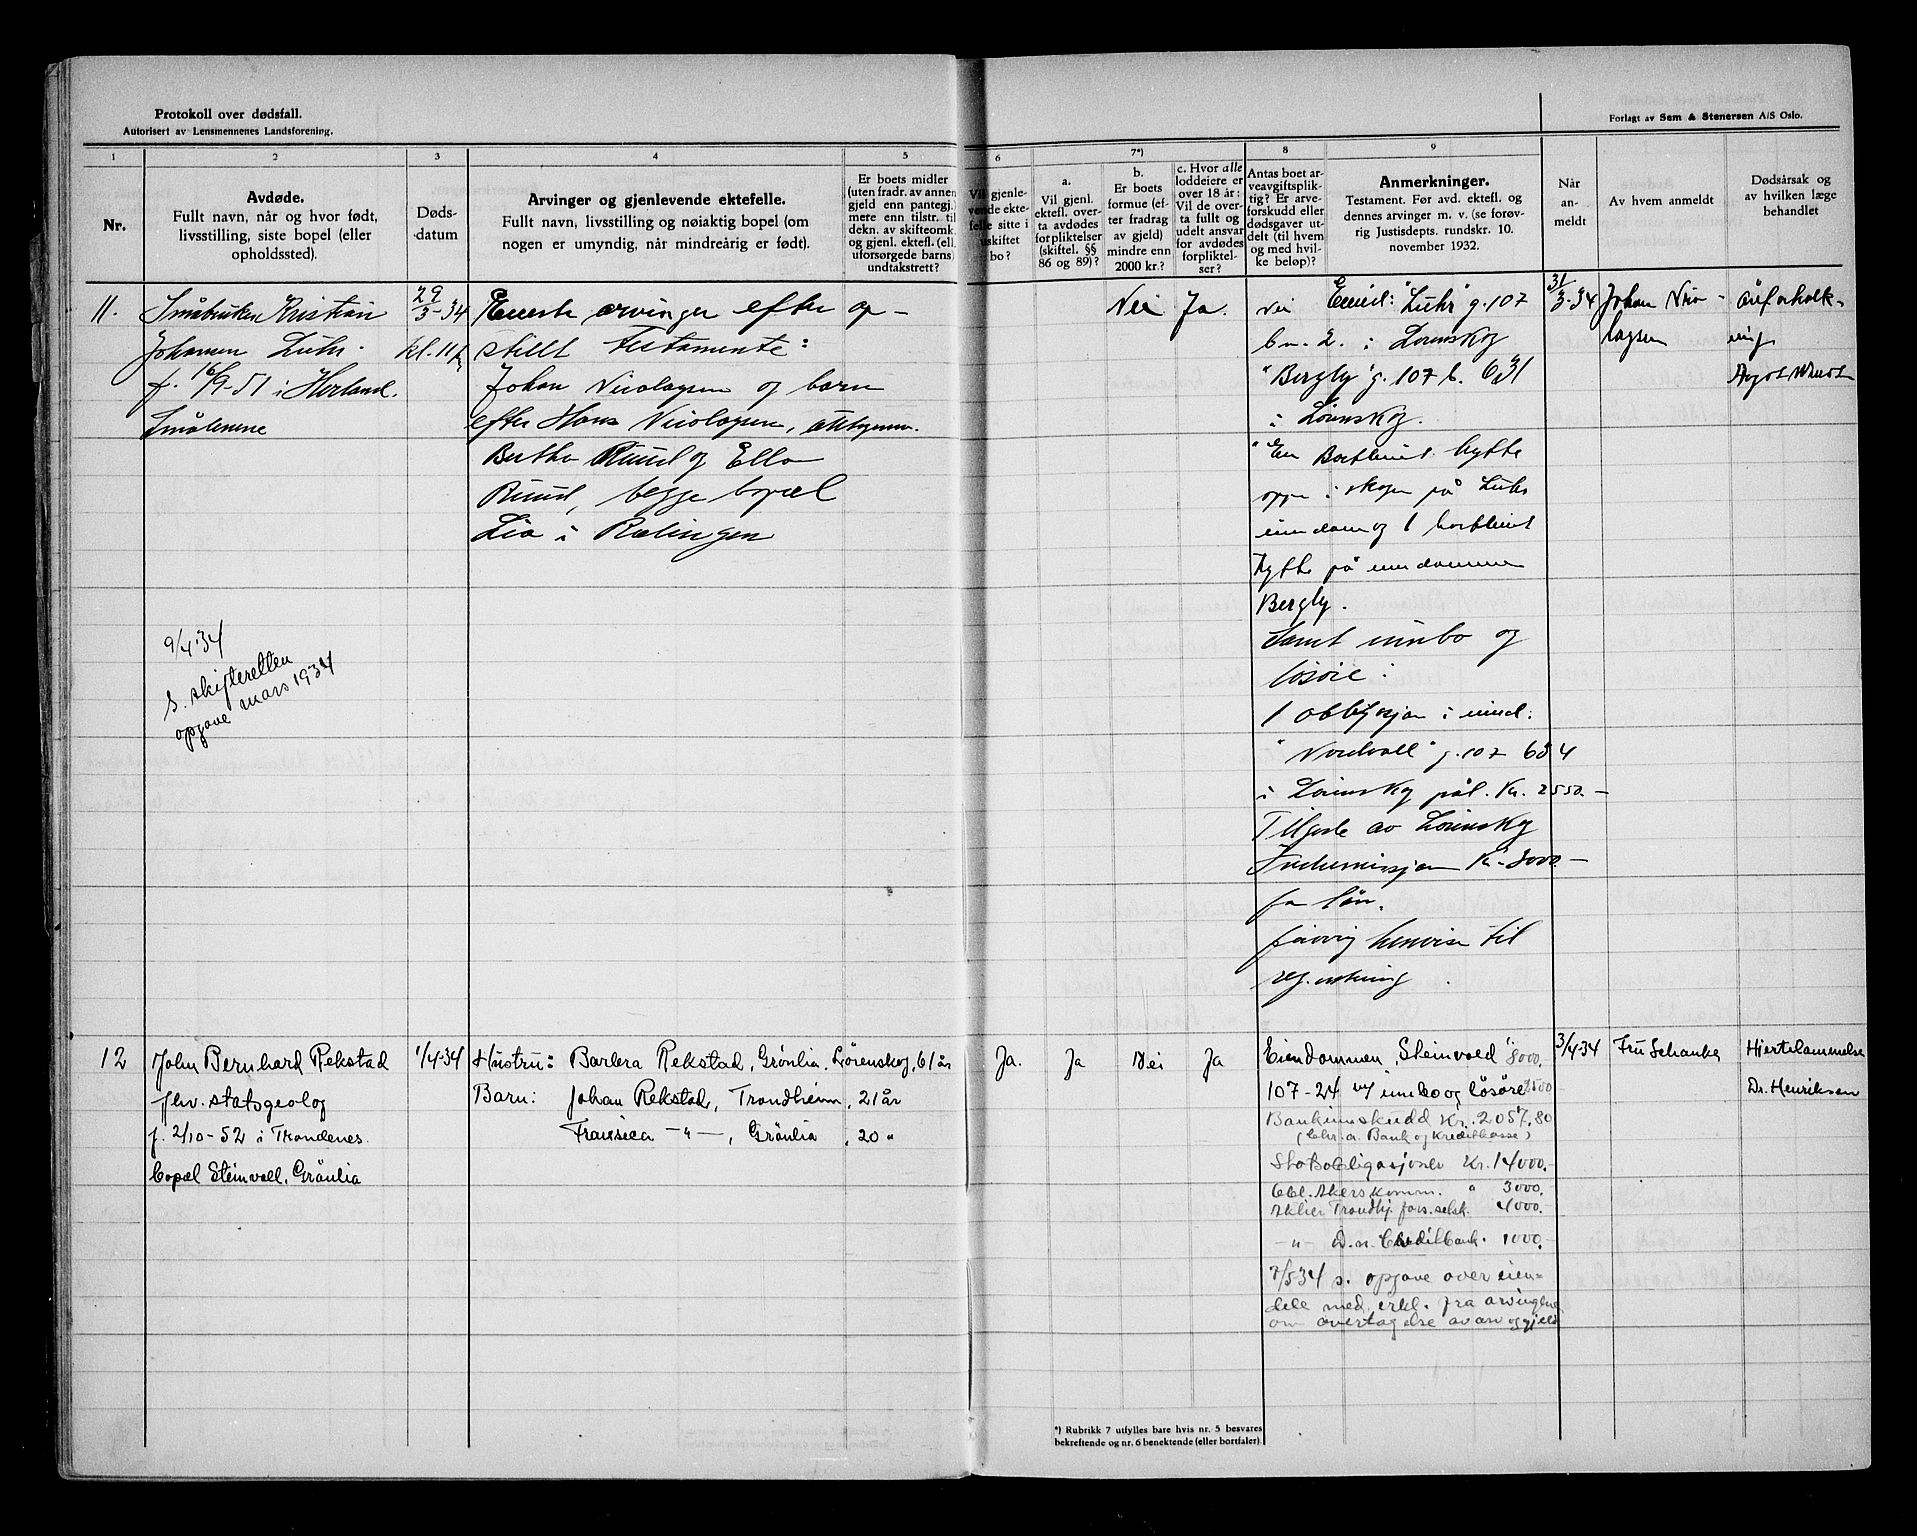 Protokoll over dødsfall.
Autorisert av Lensmennenes Landsforening.
Forlagt av Sem & Stenersen A/S Oslo.
1
2
3
4
5
6
7*)
8
9
Nr.
Avdøde.
Fullt navn, når og hvor født,
livsstilling, siste bopel (eller
opholdssted).
Døds-
datum
Arvinger og gjenlevende ektefelle.
Fullt navn, livsstilling og nøiaktig bopel (om
nogen er umyndig, når mindreårig er født).
Er boets midler
(uten fradr. av annen
gjeld enn pantegj.)
mere enn tilstr. til
dekn. av skifteomk.
og gjenl. ektefl. (ell.
uforsørgede barns)
undtakstrett?
Vil gjenle-
vende ekte-
felle sitte i
uskiftet
bo?
a.
Vil gjenl.
ektefl. over-
ta avdødes
forpliktelser
(skiftel. §§
86 og 89)?
b.
Er boets
formue (ef-
ter fradrag
av gjeld)
mindre enn
2000 kr.?
c. Hvor alle
loddeiere er
over 18 år:
Vil de over-
ta fullt og
udelt ansvar
for avdødes
forpliktel-
ser?
Antas boet ar-
veavgiftsplik-
tig? Er arve-
forskudd eller
dødsgaver ut-
delt (til hvem
og med hvil-
ke beløp)?
Anmerkninger.
Testament. Før avd. ektefl. og
dennes arvinger m. v. (se forøv-
rig Justisdepts. rundskr. 10.
november 1932.
Når
an-
meldt
Av hvem anmeldt
Dødsårsak og
av hvilken læge
behandlet
11.
Småbruker Kristian
Johansen Luhr.
f. 16/9-51 i Herland.
Smålenene
29/3-34
kl. 11
Eneste arvinger efter op-
stillt Testamente:
Johan Nicolaysen og barn
efter Hans Nicolaysen,
Bertha Ruud og Ella
Ruud, begge bopæl
Lia i Rælingen
Nei
Ja.
Nei
Eiend: "Luhr" g. 107
bn. 2. i Lørenskog
"Bergly" g. 107 b. 631
i Lørenskog.
"En hytte
oppe i skogen på Luhr
eiendom og 1
hytte på eiendommen
Bergly.
Samt innbo og
løsøre.
1 obligasjon i eiend:
"Nordvall" g. 107 684
i Lørenskog pål. Kr. 2550.-
Tilgode av Lørenskog
Indremisjon Kr. 3000.-
for lån.
forøvrig henvises til
31/3-34
Johan Nico-
laysen
Åreforkalk-
ning
9/4 34
s. skifteretten
opgave mars 1934
12
John Bernhard Rekstad
fhv. statsgeolog
f. 2/10-52 i Trondenes
bopæl Steinvoll, Grönlia
1/4-34
Hustru: Barbra Rekstad, Grönlia, Lörenskog, 61 år
Barn: Johan Rekstad, Trondheim, 21 år
Fransisca -"-, Grönlia, 20 "
Ja.
Ja
Nei
Ja
Eiendommen "Steinvold" 8000.
107-24 m/ innbo og lösöre 2500
Bankinnskudd Kr. 2057,80
(Chr.a. Bank og Kreditkasse)
Statsobligasjoner Kr. 14000.-
Obl. Akers komm. " 3000.
Aktier Trondhj. fors.selsk. 4000.-
-"- D. n. Creditbank. 1000.-
7/5 34 s. opgave over eien-
dele med erkl. fra arvingene
om overtagelse av arv og gjeld
3/4-34
Fru Schanke
Hjertelammelse
Dr. Henriksen
*) Rubrikk 7 utfylles bare hvis nr. 5 besvares
bekreftende og nr. 6 benektende (eller bortfaler).